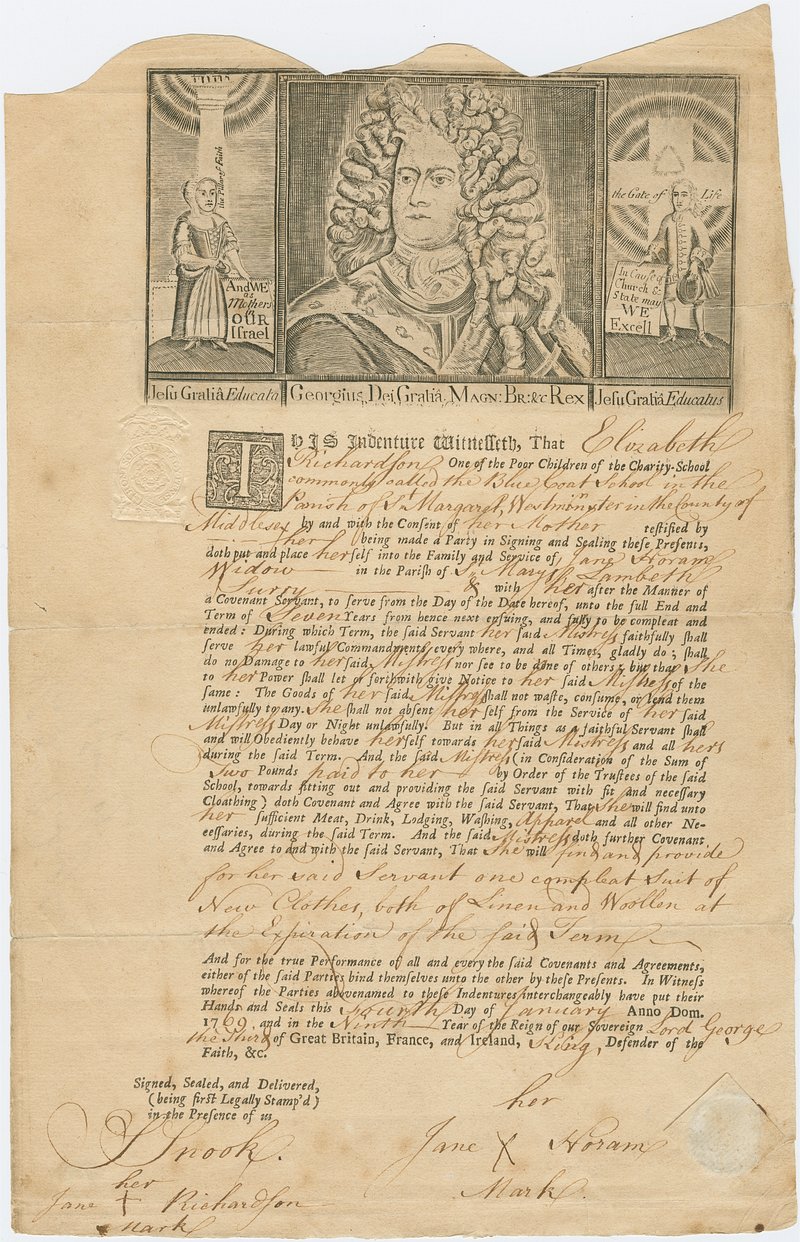 the Pillar of Faith
And WE
as
Mothers
of
OUR
Iſrael
the Gate of Life
In Cauſe of
Church &
State may
WE
Excell
Jeſu Gratiâ Educata
Georgius, Dei, Gratiâ, MAGN: BR: &c Rex
Jeſu Gratiâ Educatus
THIS Indenture Witneſſeth, That Elizabeth
Richardſon One of the Poor Children of the Charity-School
commonly called the Blue Coat School in the
Pariſh of St. Margaret, Westminster in the County of
Middleſex by and with the Conſent of her Mother teſtified by
her being made a Party in Signing and Sealing theſe Preſents,
doth put and place herſelf into the Family and Service of Jane Horam
Widow in the Pariſh of St. Marys Lambeth
Surry & with her after the Manner of
a Covenant Servant, to ſerve from the Day of the Date hereof, unto the full End and
Term of Seven Years from hence next enſuing, and fully to be compleat and
ended: During which Term, the ſaid Servant her ſaid Miſtreſs faithfully ſhall
ſerve her lawful Commandments every where, and all Times, gladly do; ſhall
do no Damage to her ſaid Miſtreſs nor ſee to be done of others; but that She
to her Power ſhall let or forthwith give Notice to her ſaid Miſtreſs of the
ſame: The Goods of her ſaid Miſtreſs ſhall not waſte, conſume, or lend them
unlawfully to any. She ſhall not abſent her ſelf from the Service of her ſaid
Miſtreſs Day or Night unlawfully. But in all Things as a faithful Servant ſhall
and will Obediently behave herſelf towards her ſaid Miſtreſs and all hers
during the ſaid Term. And the ſaid Miſtreſs (in Conſideration of the Sum of
Two Pounds paid to her by Order of the Truſtees of the ſaid
School, towards fitting out and providing the ſaid Servant with fit and neceſſary
Cloathing) doth Covenant and Agree with the ſaid Servant, That She will find unto
her ſufficient Meat, Drink, Lodging, Waſhing, Apparel and all other Ne-
eeſſaries, during the ſaid Term. And the ſaid Miſtreſs doth further Covenant
and Agree to and with the ſaid Servant, That She will find and provide
for her said Servant one compleat Suit of
New Clothes, both of Linen and Woollen at
the Expiration of the ſaid Term
And for the true Performance of all and every the ſaid Covenants and Agreements,
either of the ſaid Parties bind themſelves unto the other by theſe Preſents. In Witneſs
whereof the Parties abovenamed to theſe Indentures interchangeably have put their
Hands and Seals this Fourth Day of January Anno Dom.
1769, and in the Ninth Year of the Reign of our Sovereign Lord George
the Third of Great Britain, France, and Ireland, King, Defender of the
Faith, &c.
Signed, Sealed, and Delivered,
(being firſt Legally Stamp'd)
in the Preſence of us
S Snook.
her
Jane + Richardſon
Mark
her
Jane X Horam
Mark